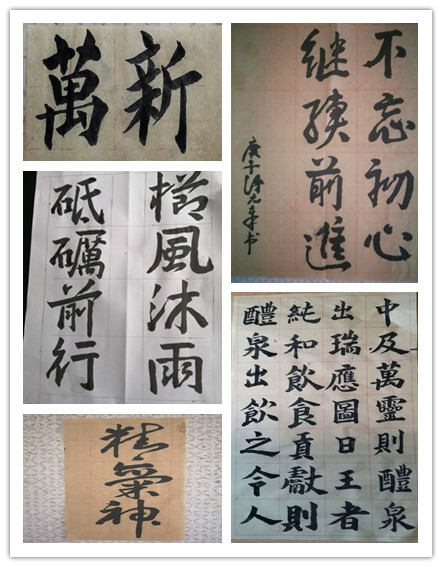 新
萬
不忘初心
继续前進
櫛風沐雨
砥礪前行
精氣神
中及萬靈則醴泉
出瑞應圖曰王者
純和飲食貢獻則
醴泉出飲之令人